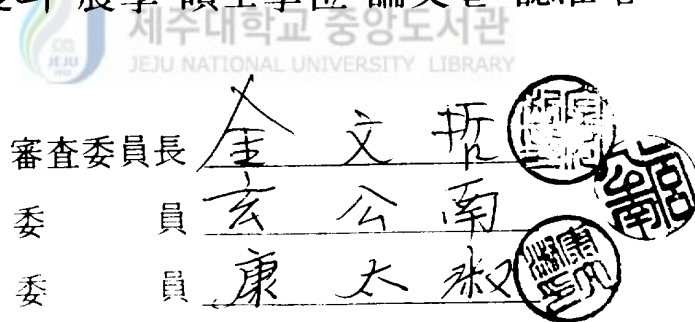 農學 碩士學位 論文
제주대학교 중앙도서관
JEJU NATIONAL UNIVERSITY LIBRARY
JEJU
1952
審査委員長 金文哲
委員 玄公南
委員 康太淑